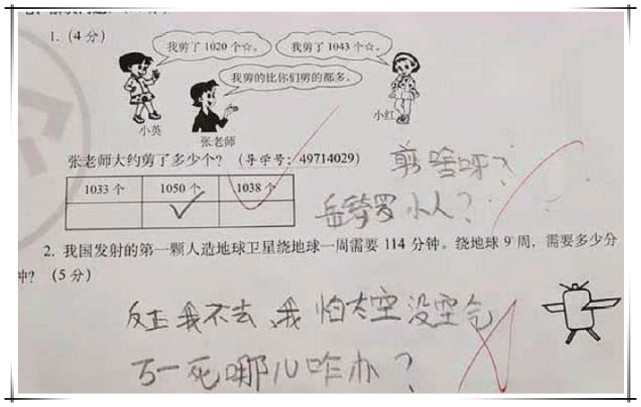 1.（4分）
我剪了1020个☆。
我剪了1043个☆。
我剪的比你们剪的都多。
小英
张老师
小红
张老师大约剪了多少个？（导学号：49714029）
1033个 1050个 1038个
✓
剪啥呀？
小人？
2. 我国发射的第一颗人造地球卫星绕地球一周需要114分钟。绕地球9周，需要多少分
钟？（5分）
反正我不去，我怕太空没空气
万一死哪儿咋办？